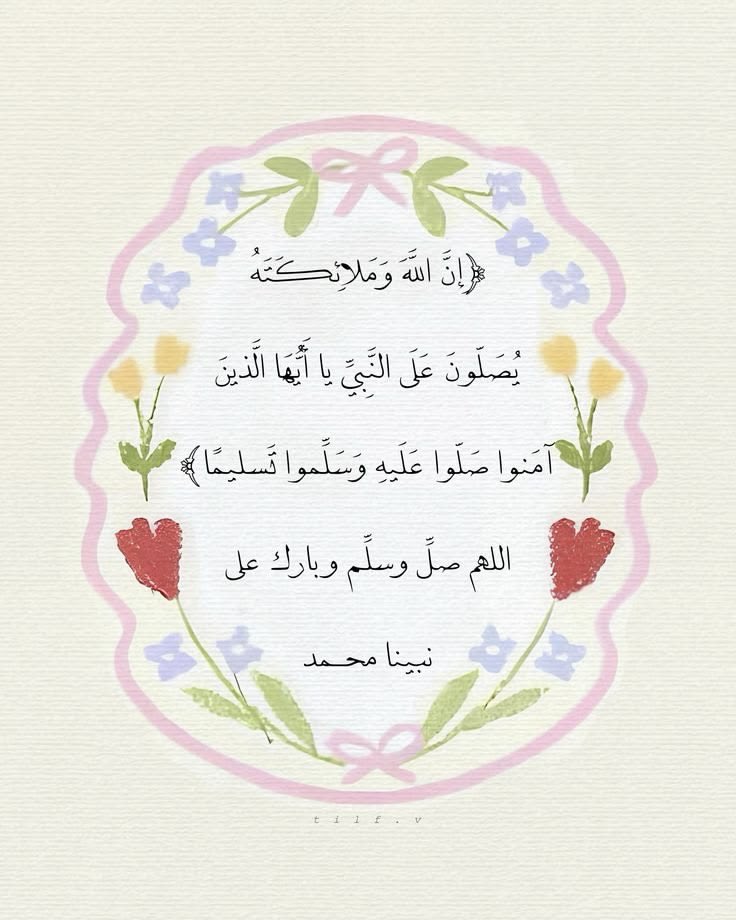 ﴿إِنَّ اللَّهَ وَمَلائِكَتَهُ
يُصَلّونَ عَلَى النَّبِيِّ يا أَيُّهَا الَّذينَ
آمَنوا صَلّوا عَلَيهِ وَسَلِّموا تَسليمًا﴾
اللهم صلِّ وسلِّم وبارك على
نبينا محمد
tilf.v